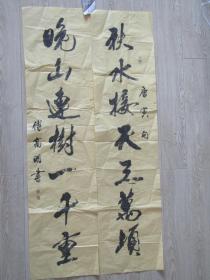 秋水接天三萬頃
唐寅句
晚山連樹一千重
傅尚朋書